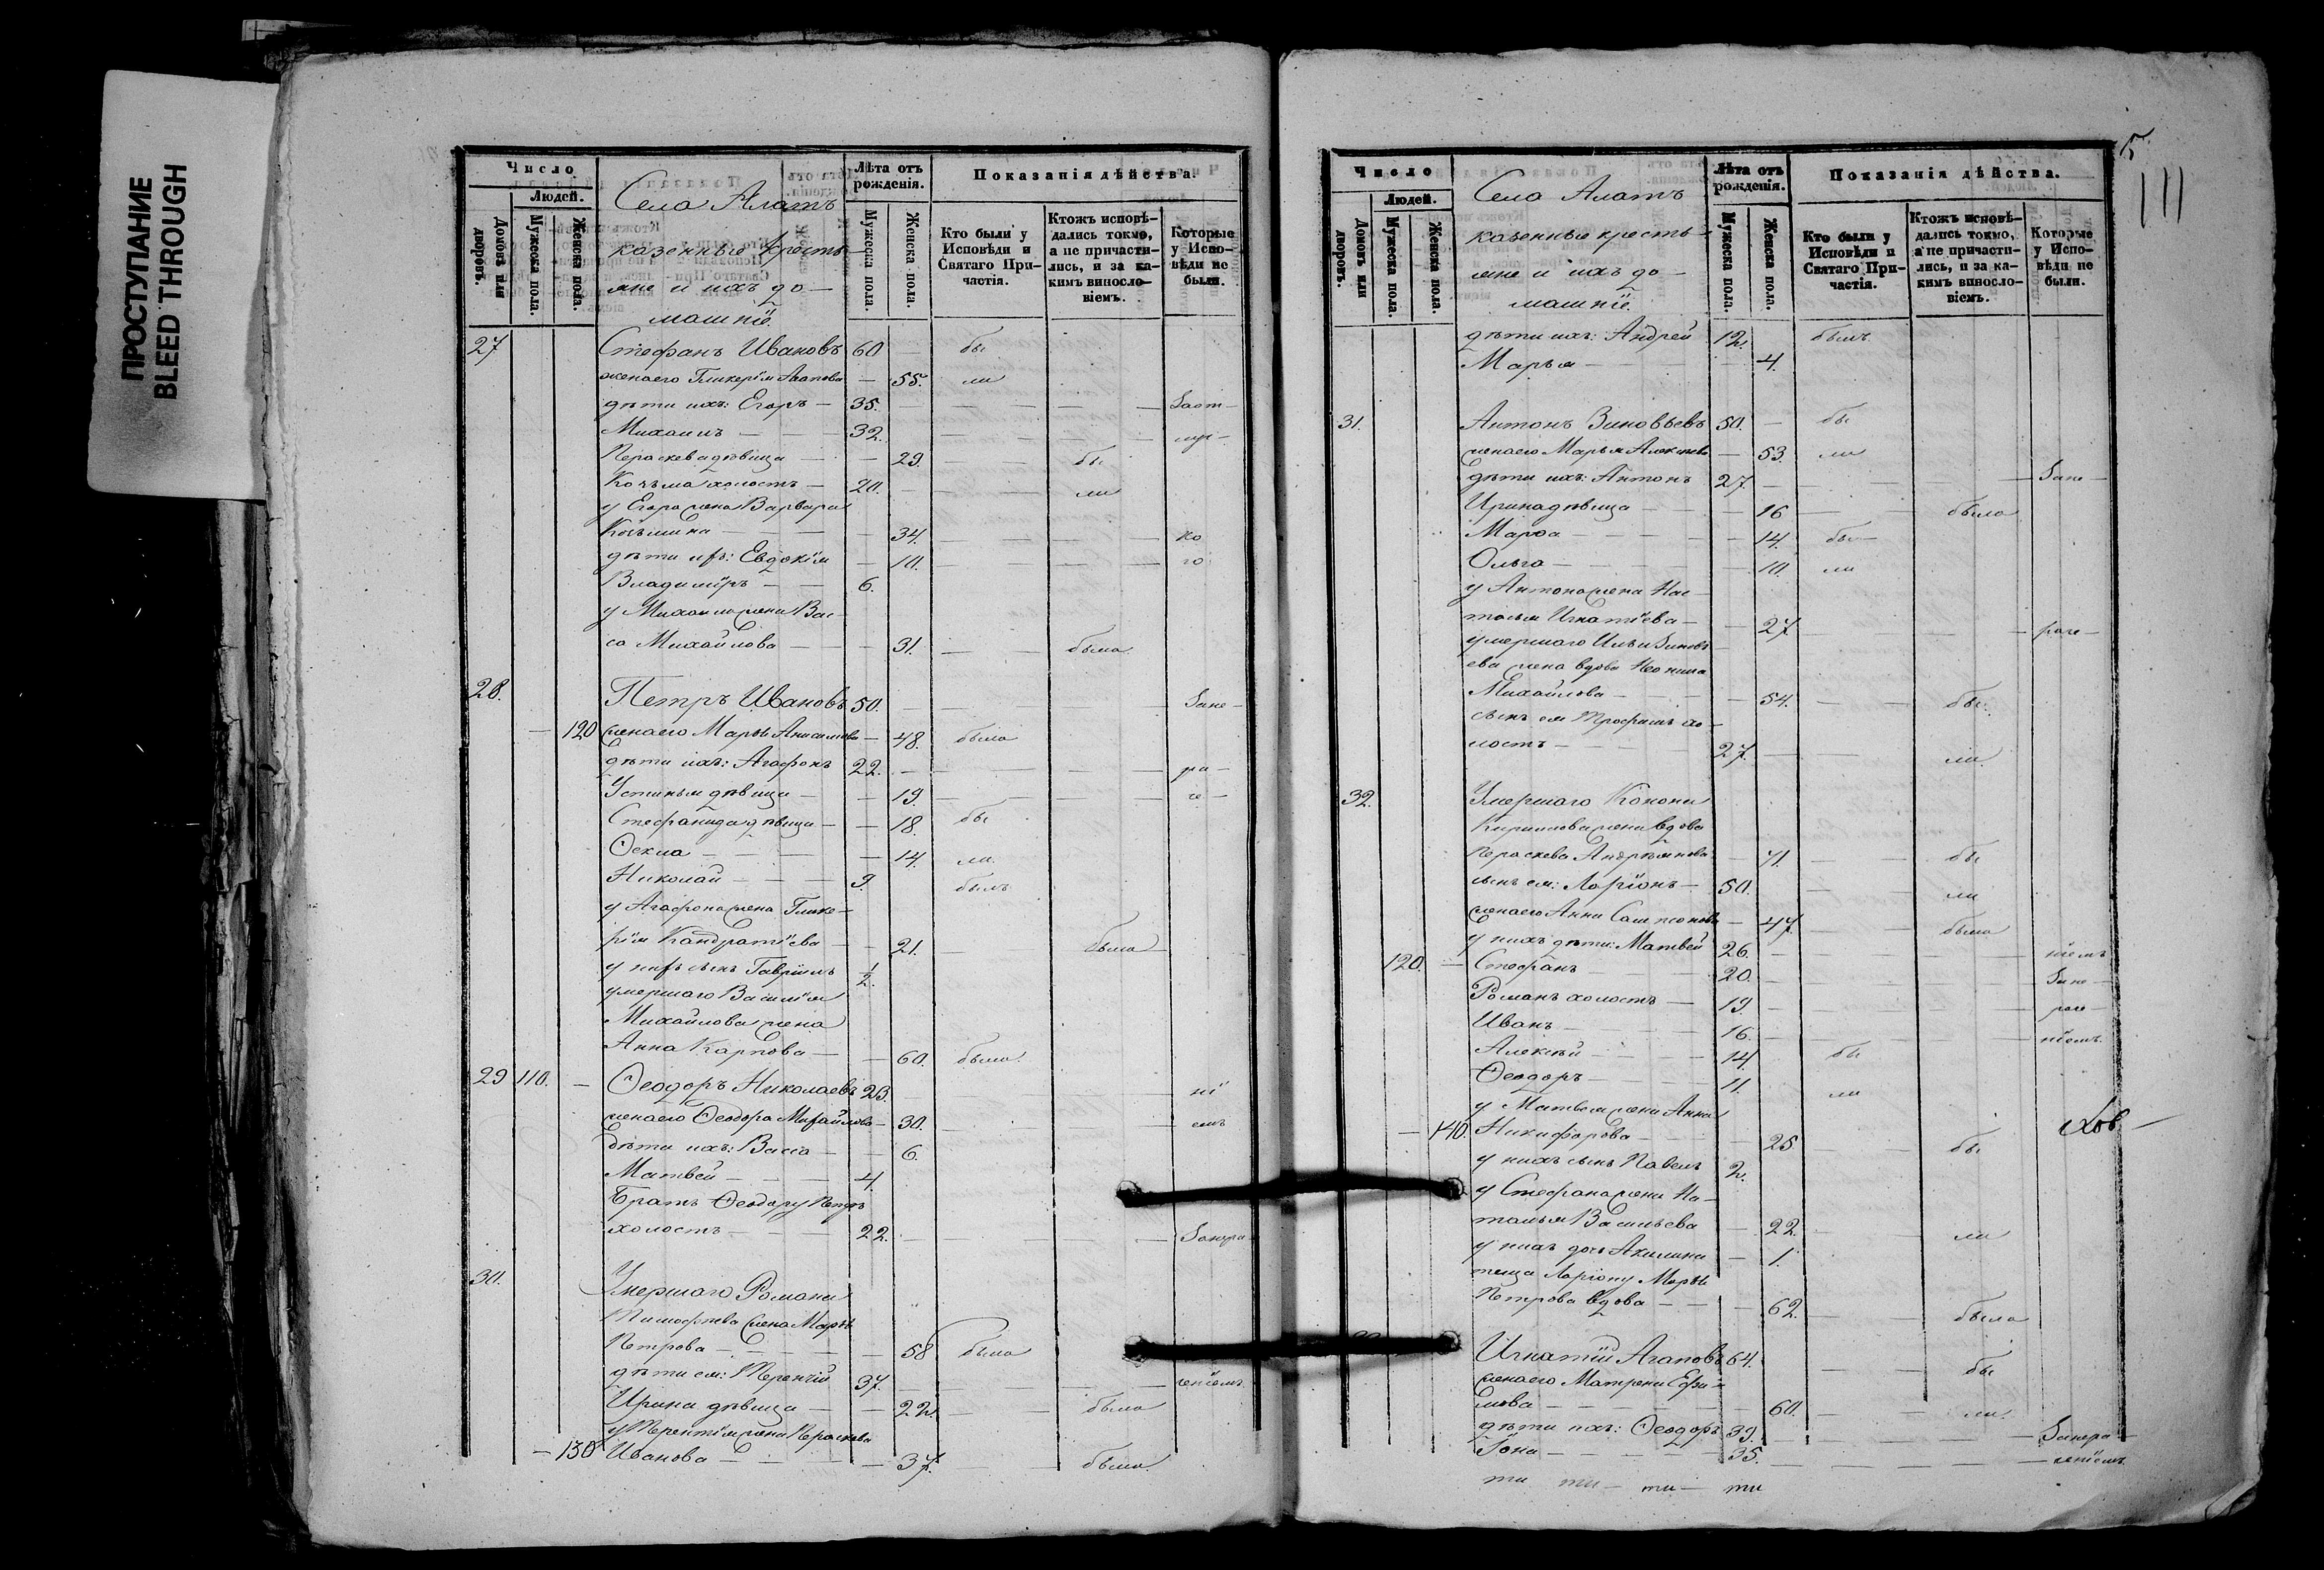 ПРОСТУПАНИЕ
BLEED THROUGH
Число
Людей.
Домовъ или дворовъ.
Мужеска пола.
Женска пола.
Села Алатъ
казенные кресть-
яне и ихъ до-
машніе
Лѣта отъ рожденія.
Мужеска пола.
Женска пола.
Показанія дѣйства.
Кто были у Исповѣди и Святаго При-частія.
Ктожъ исповѣ-дались токмо, а не причасти-лись, и за ка-кимъ винословіемъ.
Которые у Испо-вѣди не были.
27 Стефанъ Ивановъ 60 — бы
жена его Гликерія Агапова — 55. ли
дѣти ихъ: Егоръ — 35.
Михаилъ — 32.
Параскева дѣвица — 29. бы
Козьма холостъ — 20. ли
у Егора жена Варвара
Козьмина — 34. ко
дѣти ихъ: Евдокія — 10. го
Владиміръ — 6.
у Михаила жена Вас-
са Михайлова — 31. была
28. Петръ Ивановъ 50. Зане-
— 120 жена его Марья Анисимова — 48. была
дѣти ихъ: Агафонъ 22. ра-
Устинья дѣвица — 19. че-
Стефанида дѣвица — 18. бы
Ѳекла — 14. ли
Николай — 9. былъ
у Агафона жена Глике-
рія Кандратіева — 21. была
у нихъ сынъ Гавріилъ 1/2.
умершаго Василія
Михайлова жена
Анна Карпова — 60. была
29 110. — Ѳеодоръ Николаевъ 23. ні
жена его Ѳеодора Михайлова — 30. емъ
дѣти ихъ: Васса — 6.
Матвей — 4.
Братъ Ѳеодору Петръ
холостъ — 22. Занера
30. Умершаго Романа
Тимофеева жена Марья
Петрова — 58 была
дѣти ея: Терентій 37. ченіемъ
Ирина дѣвица — 22. была
у Терентія жена Параскева
— 130 Иванова — 37. была
5
111
Число
Людей.
Домовъ или дворовъ.
Мужеска пола.
Женска пола.
Села Алатъ
казенные кресть-
яне и ихъ до-
машніе.
Лѣта отъ рожденія.
Мужеска пола.
Женска пола.
Показанія дѣйства.
Кто были у Исповѣди и Святаго При-частія.
Ктожъ исповѣ-дались токмо, а не причасти-лись, и за ка-кимъ винословіемъ.
Которые у Испо-вѣди не были.
дѣти ихъ: Андрей 12. былъ
Марья — 4.
31. Антонъ Зиновьевъ 50. — бы
жена его Марья Алексеева — 53. ли
дѣти ихъ: Антонъ 27. Зане-
Ирина дѣвица — 16 была
Марѳа — 14. бы-
Ольга — 10. ли
у Антона жена Нас-
тасья Игнатіева — 27 раче-
умершаго Ильи Зиновь-
ева жена вдова Неонила
Михайлова — 54. бы
сынъ ея Трофимъ хо-
лостъ — 27. ли
32. Умершаго Конона
Кирилова жена вдова
Параскева Андреянова — 71. бы
сынъ ея: Ларіонъ — 50. ли
жена его Анна Сампсонова — 47. была
у нихъ дѣти: Матвей 26. ніемъ
120. — Стефанъ — 20. Зане-
Романъ холостъ — 19. раче-
Иванъ — 16. ніемъ
Алексѣй — 14. бы
Ѳеодоръ — 11. ли
у Матвея жена Анна
— 140. Никифорова — 25. бы
у нихъ сынъ Павелъ 2.
у Стефана жена На-
талья Васильева — 22. ли
у нихъ дочь Акилина — 1.
теща Ларіону Марья
Петрова вдова — 62. была
Игнатій Агаповъ 64. бы
жена его Матрена Ефи-
мова — 60. ли.
дѣти ихъ: Ѳеодоръ 39. Занера-
Іона — 35. ченіемъ
ти ти — ти — ти